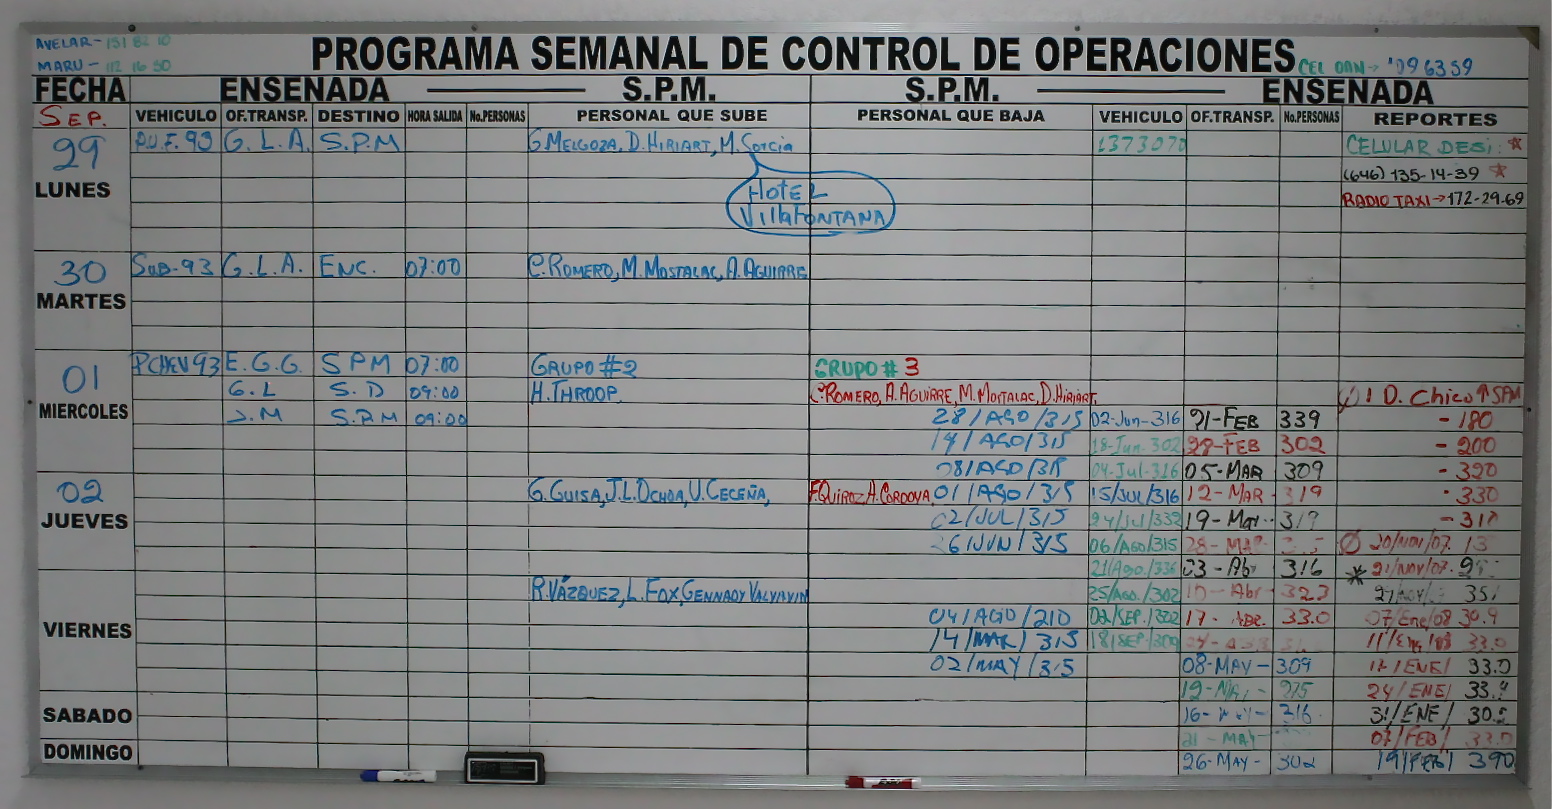 AVELAR - 151 82 10
MARU - 112 16 50
PROGRAMA SEMANAL DE CONTROL DE OPERACIONES
CEL DAN→ '096359
FECHA ENSENADA S.P.M. S.P.M. ENSENADA
SEP. VEHICULO OF.TRANSP. DESTINO HORA SALIDA No.PERSONAS PERSONAL QUE SUBE PERSONAL QUE BAJA VEHICULO OF.TRANSP. No.PERSONAS REPORTES
29 G.L.A. S.P.M G.MELGOZA, D.HIRIART, M. 1373070 CELULAR DESi: *
(646) 135-14-39 *
LUNES HOTEL RADIO TAXI→172-29-69
VillaFONTANA
30 SUB-93 G.L.A. ENC. 07:00 C.ROMERO, M.MOSTALAC, A.AGUIRRE
MARTES
01 PCHEV93 E.G.G. SPM 07:00 GRUPO #2 GRUPO # 3
G.L S.D 09:00 H.THROOP C.ROMERO, A.AGUIRRE, M.MOSTALAC, D.HIRIART, 1 D. Chico ↑ SPM
MIERCOLES J.M S.P.M 09:00 28/AGO/315 02-Jun-316 21-FEB 339 - 180
14/AGO/315 18-Jun-302 28-FEB 302 - 200
08/AGO/315 04-Jul-316 05-MAR 309 - 320
02 G.GUISA, J.L.OCHOA, U.CECEÑA, F.QUIROZ A.CORDOVA 01/AGO/315 15/JUL/316 12-MAR 319 - 330
JUEVES 02/JUL/315 24/Jul/332 19-Mar 319 - 317
26/JUN/315 06/AGO/315 28-MAR Ø 20/NOV/07.
21/Ago./336 03-Abr 316 * 21/NOV/07.
R.VÁZQUEZ, L.FOX, GENNADY VALYAVIN 25/AGO./302 10-Abr 323
VIERNES 04/AGO/210 02/SEP./302 17-ABR. 33.0 07/Ene/08 30.9
14/MAR/315 18/SEP/300 11/Ene/08 33.0
02/MAY/315 08-MAY-309 17/ENE/ 33.0
19-MAY- 24/ENE/
SABADO 16-MAY-316 31/ENE/
21-MAY- 07/FEB/ 33.0
DOMINGO 26-MAY-302 19/FEB/ 390